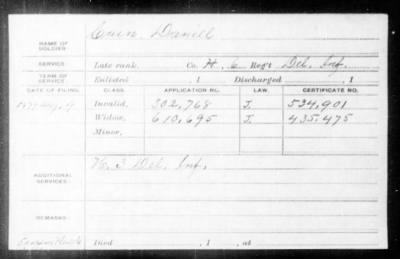 NAME OF SOLDIER: Cain, Daniel
SERVICE: Late rank, Co. H, 6 Reg't Del. Inf.
TERM OF SERVICE: Enlisted , 1 Discharged , 1
DATE OF FILING. CLASS. APPLICATION NO. LAW. CERTIFICATE NO.
Invalid, 302,768 J. 534,901
Widow, 610,695 J. 435,475
Minor,
ADDITIONAL SERVICES: K. 3 Del. Inf.
REMARKS:
Died , 1 , at